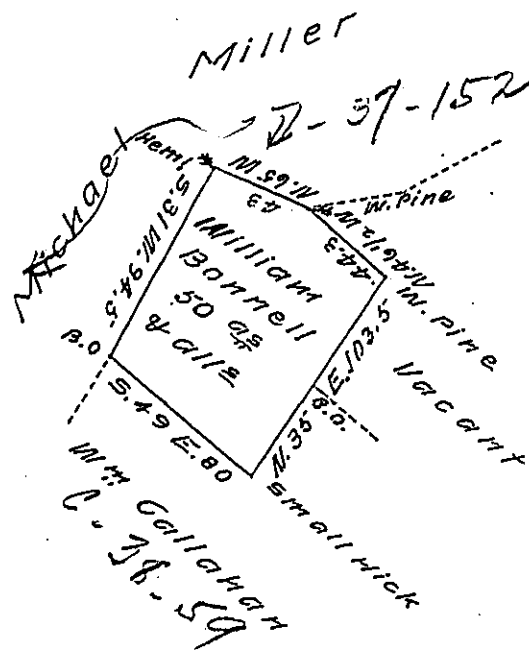 Miller
Michael
D-37-152
Hem!
N.65 W
43
W. Pine
N.46½ W
44.3
W. pine
S.31 W. 94.5
William
Bonnell
50 as
& alls
B.O
S.49 E.80
N.35 E.103.5
B.O.
Vacant
small Hick
Wm Callahan
C-38-59